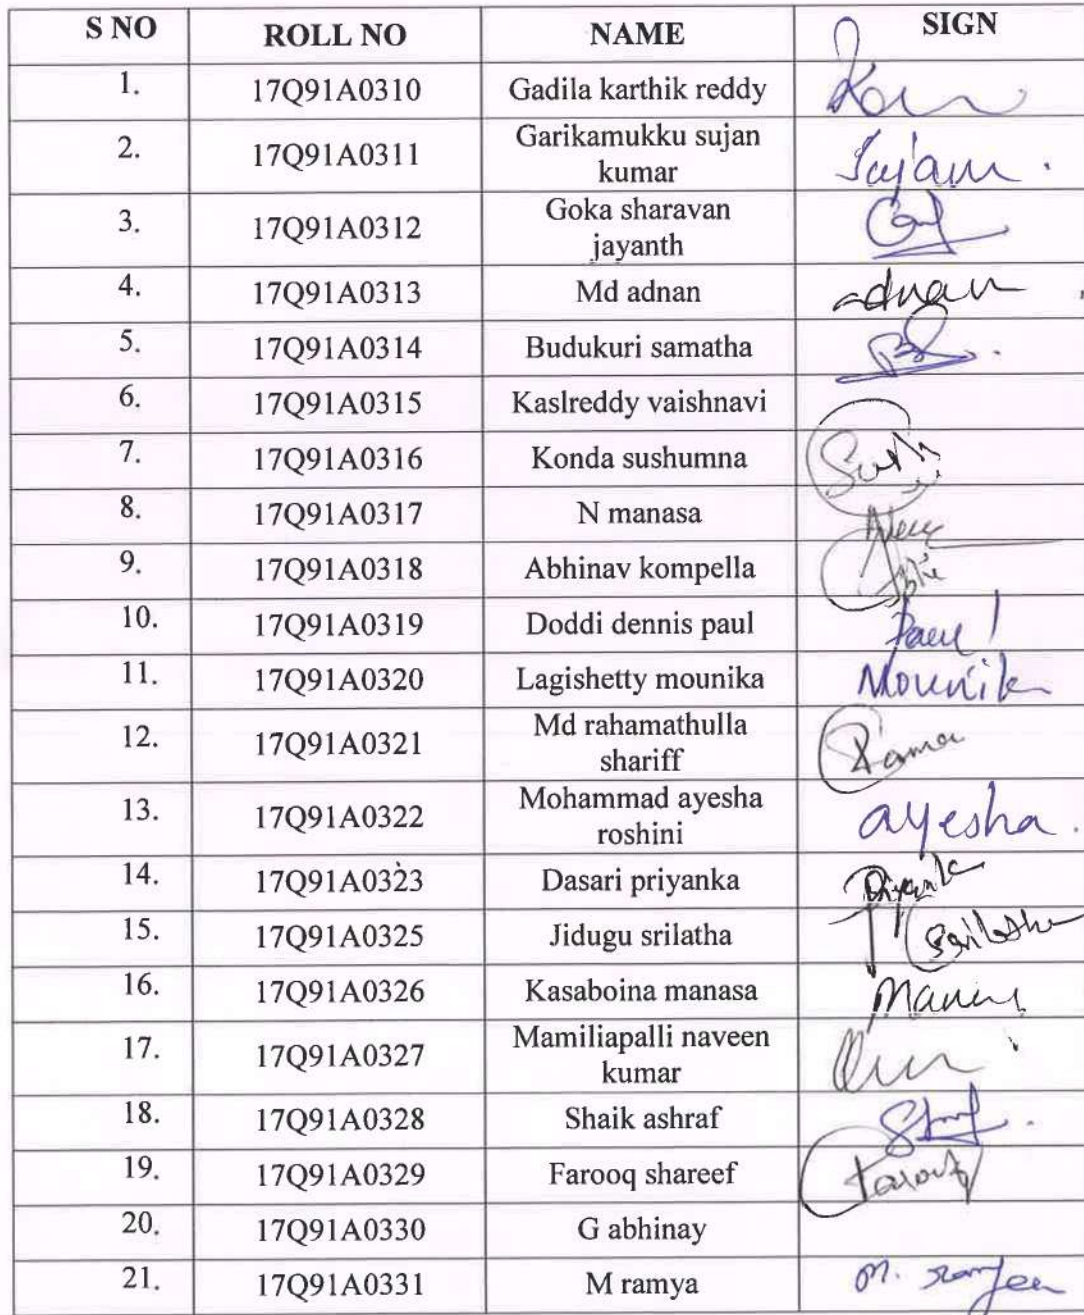 S NO ROLL NO NAME SIGN
1. 17Q91A0310 Gadila karthik reddy
2. 17Q91A0311 Garikamukku sujan
kumar Sujan.
3. 17Q91A0312 Goka sharavan
jayanth
4. 17Q91A0313 Md adnan adnan
5. 17Q91A0314 Budukuri samatha
6. 17Q91A0315 Kaslreddy vaishnavi
7. 17Q91A0316 Konda sushumna
8. 17Q91A0317 N manasa
9. 17Q91A0318 Abhinav kompella
10. 17Q91A0319 Doddi dennis paul Paul
11. 17Q91A0320 Lagishetty mounika Mounika
12. 17Q91A0321 Md rahamathulla
shariff
13. 17Q91A0322 Mohammad ayesha
roshini ayesha.
14. 17Q91A0323 Dasari priyanka
15. 17Q91A0325 Jidugu srilatha Srilatha
16. 17Q91A0326 Kasaboina manasa
17. 17Q91A0327 Mamiliapalli naveen
kumar
18. 17Q91A0328 Shaik ashraf
19. 17Q91A0329 Farooq shareef
20. 17Q91A0330 G abhinay
21. 17Q91A0331 M ramya M.